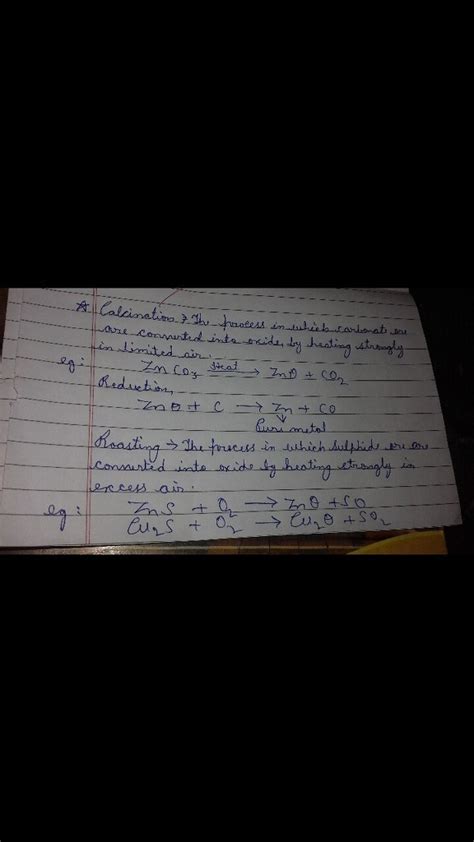 ☆ Calcination → The process in which carbonate ore
are converted into oxides by heating strongly
in limited air.
eg: ZnCO₃ —Heat→ ZnO + CO₂
Reduction,
ZnO + C → Zn + CO
↓
Pure metal
Roasting → The process in which sulphide ore are
converted into oxide by heating strongly in
excess air.
eg: ZnS + O₂ → ZnO + SO
Cu₂S + O₂ → Cu₂O + SO₂